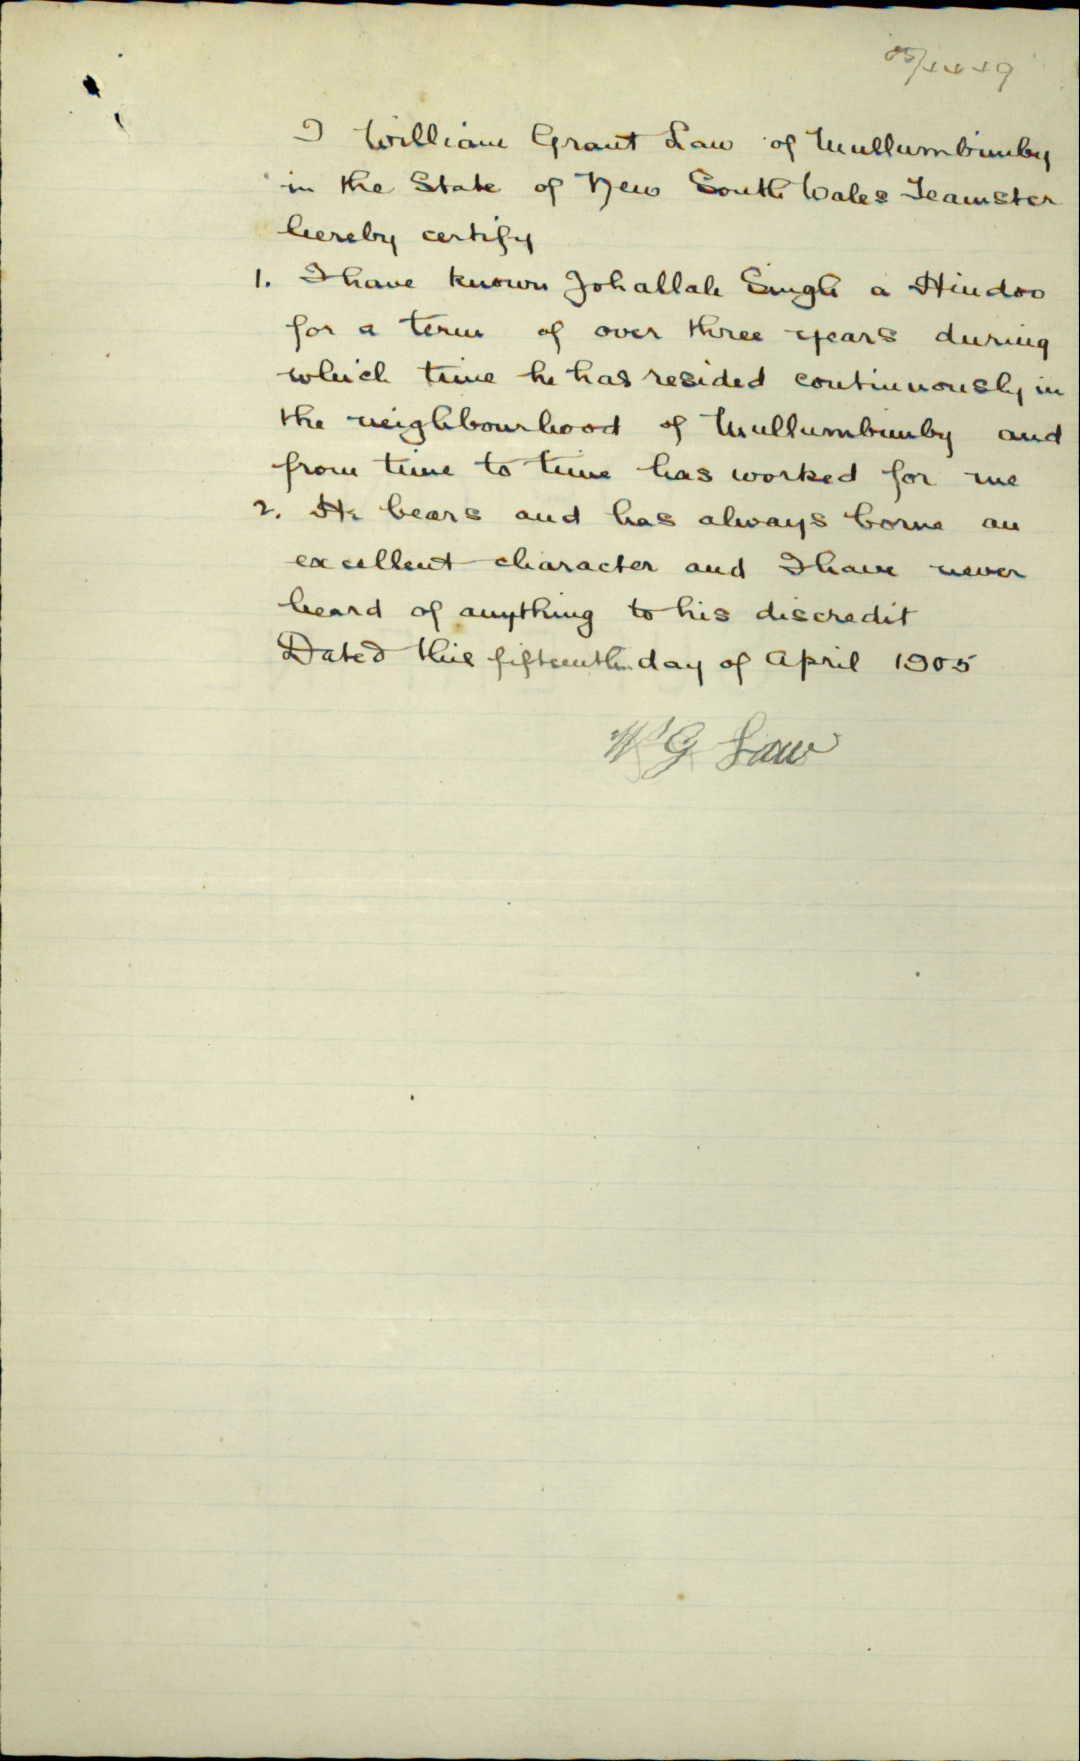 I William Grant Law of Mullumbimby
in the State of New South Wales Teamster
hereby certify
1. I have known Johallah Singh a Hindoo
for a term of over three years during
which time he has resided continuously in
the neighbourhood of Mullumbimby and
from time to time has worked for me
2. He bears and has always borne an
excellent character and I have never
heard of anything to his discredit
Dated this fifteenth day of April 1905
W G Law